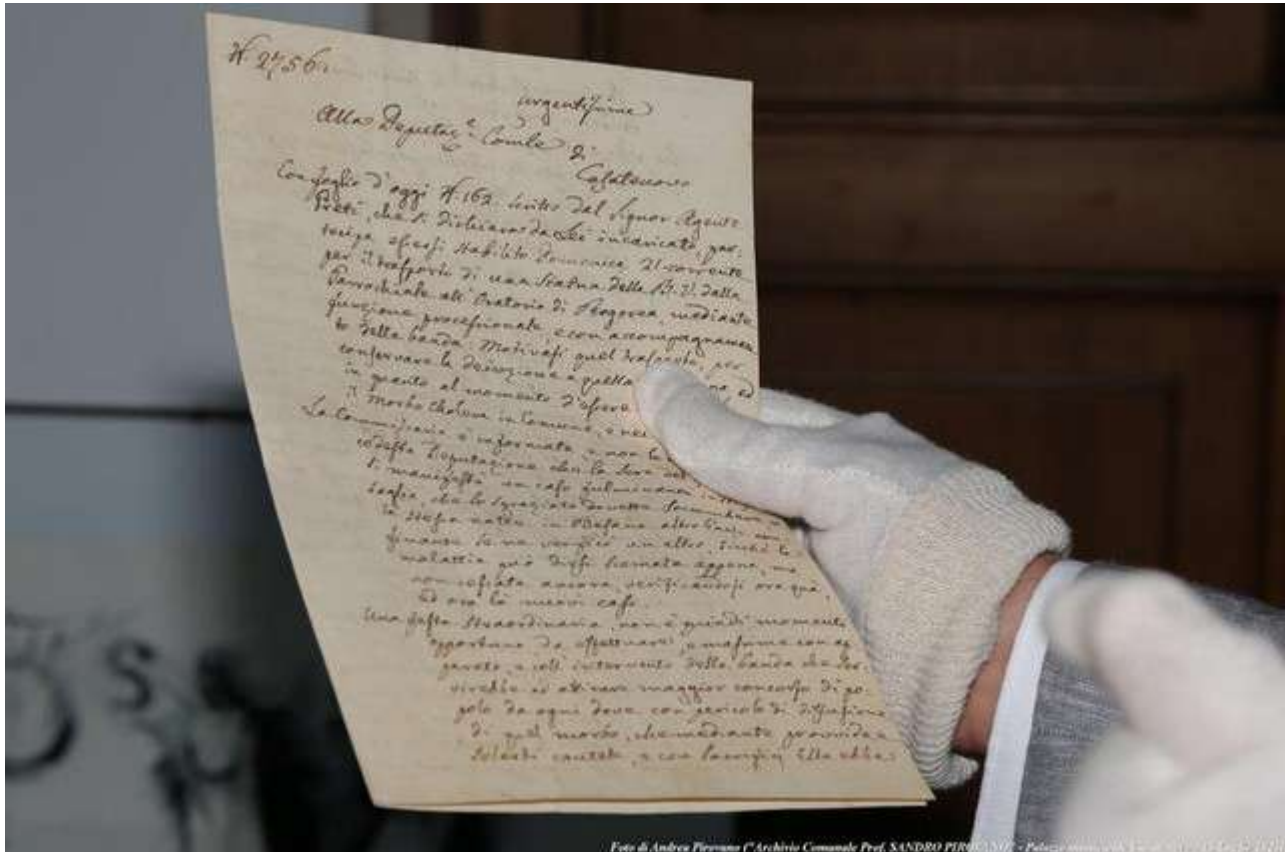 N. 2756.
urgentissime
Alla Deputaz.e Com.le di
Casatenovo
Con foglio d'oggi N. 162 scritto dal Signor Agente
Preti, che si dichiara da Lei incaricato, par-
tecipa essersi stabilito Domenica 21 corrente
per il trasporto di una Statua della B. V. dalla
Parrochiale all'Oratorio di Rogorea, mediante
funzione processionale, e con accompagnamen
to della banda. Motivasi quel trasporto, per
conservare la devozione a quella ed
in quanto al momento d'essere
il Morbo Cholera in Comune, e nei
La Commissaria è informata, e non lo
codesta Deputazione che la sera
si manifestò un caso fulminante in
che lo sgraziato dovette soccombere
la stessa notte, in altro
se ne verificò un altro, sicché la
malattia può dirsi scemata appena, ma
non cessata ancora, verificandosi ora qua,
ed ora là nuovi casi.
Una festa straordinaria non è quindi momento
opportuno da effettuarsi, e massime con ap
parato, e coll'intervento della banda che ser
virebbe ad attivare maggior concorso di po-
polo da ogni dove con pericolo di diffusione
di quel morbo, che mediante provvide e
solerti cautele, e con sacrifici Ella ebbe
Foto di Andrea Pirovano ("Archivio Comunale Prof. SANDRO PIROVANO" - Palazzo